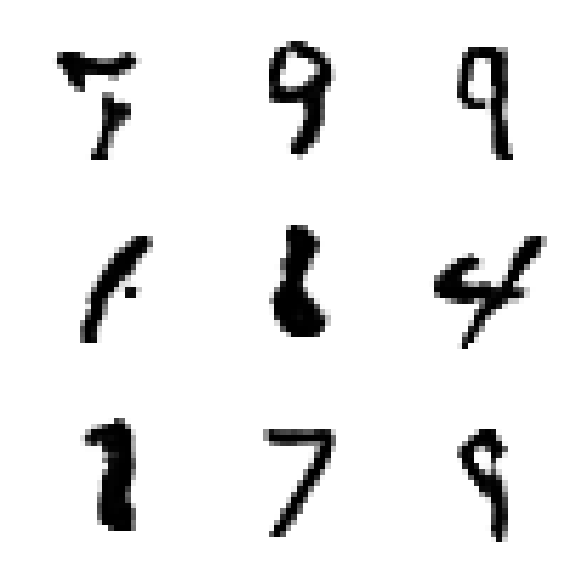 7 9 9
1 8 4
1 7 9